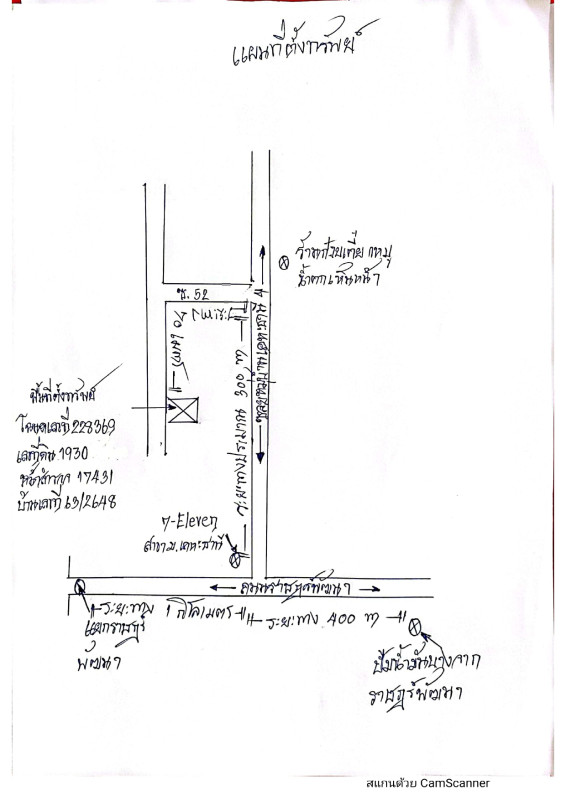 แผนที่ตั้งทรัพย์
ร้านก๋วยเตี๋ยวหมู
น้ำตกเห็นหน้า
ซ. 52
70 เมตร
ระยะทางประมาณ 300  m
พื้นที่ตั้งทรัพย์
โฉนดเลขที่ 228369
เลขที่ดิน 1930
หน้าสำรวจ 17431
บ้านเลขที่ 63/2648
7-Eleven
สาขา ม.เคหะธานี
ถนนราษฎร์พัฒนา
ระยะทาง 1 กิโลเมตร
ระยะทาง 400 m
แยกราษฎร์
พัฒนา
ปั๊มน้ำมันบางจาก
ราษฎร์พัฒนา
สแกนด้วย CamScanner